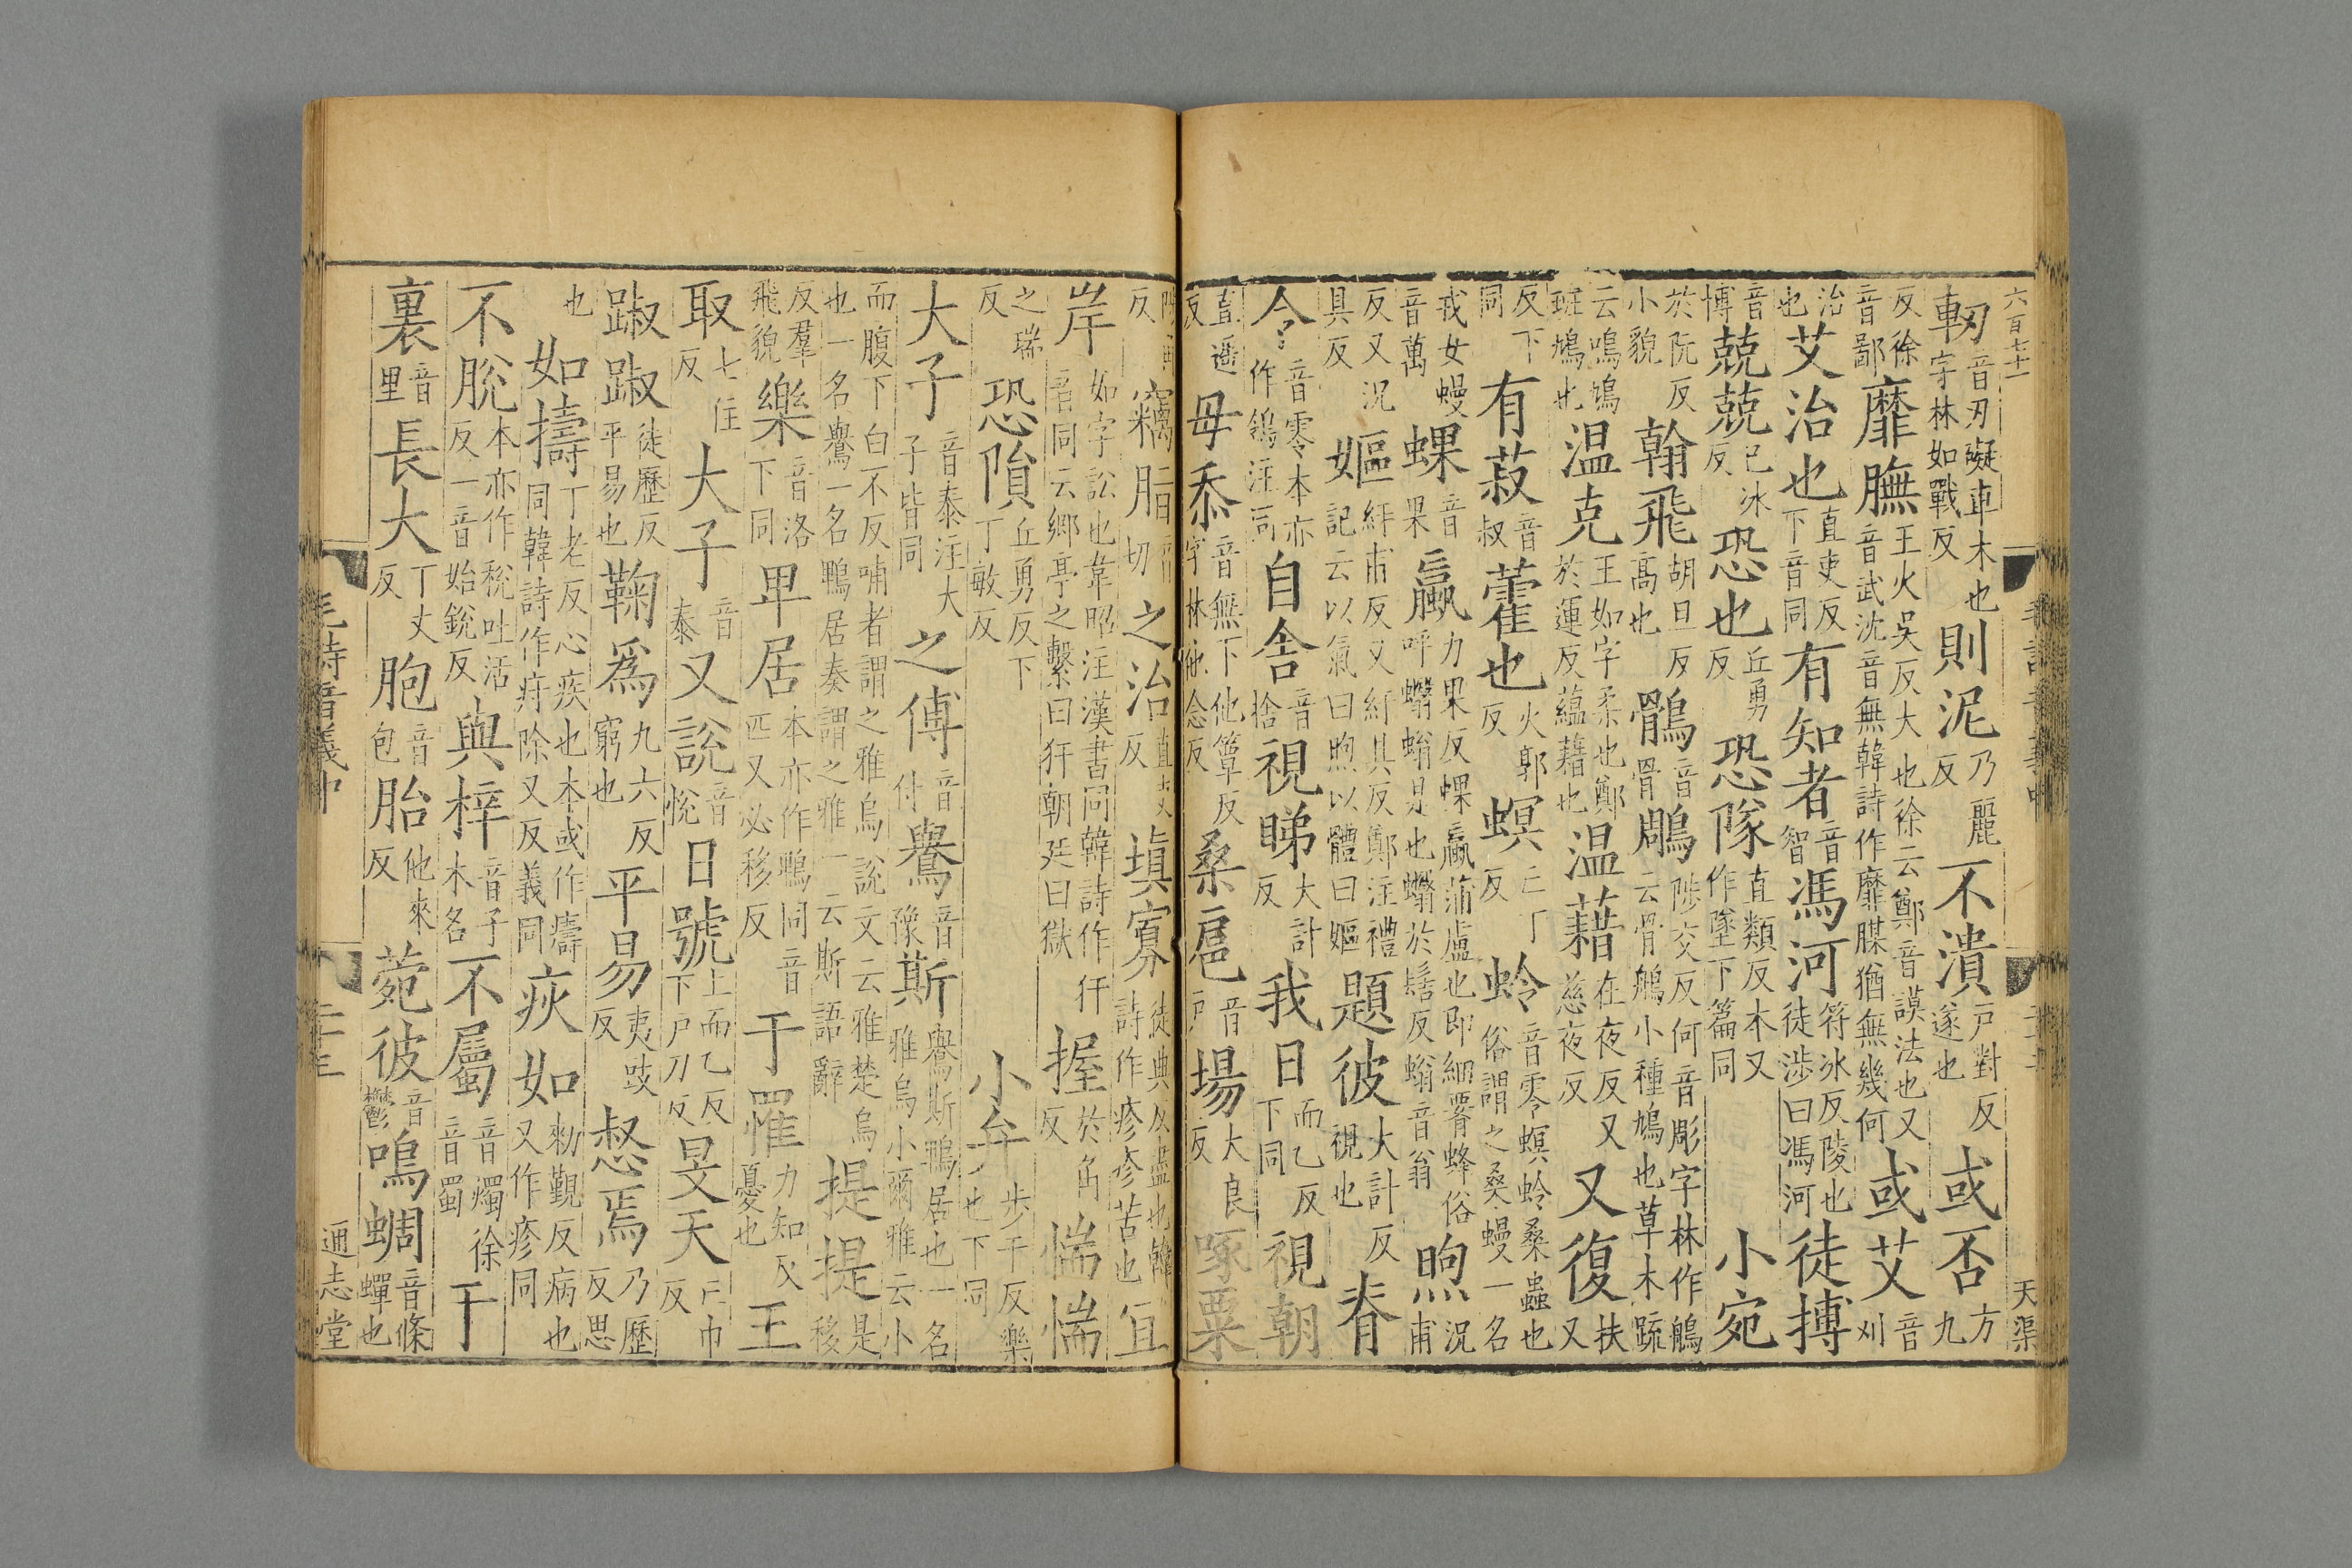 六百七十一
天渠
軔音刃礙車木也字林如戰反則泥乃麗反不潰戸對反遂也或否方九
反徐音鄙靡膴王火吳反大也徐云鄭音謨法也又音武沈音無韓詩作靡腜猶無幾何或艾音刈
治也艾治也直吏反下音同有知者音智馮河符冰反陵也徒渉曰馮河徒搏
音博兢兢已冰反恐也丘勇反恐隊直類反本又作墜下篇同小宛
於阮反小貌翰飛胡旦反高也鶻音骨鵰陟交反何音彫字林作鵃云骨鵃小種鳩也草木疏
云鳴鳩斑鳩也温克王如字柔也鄭於運反蘊藉也温藉在夜反又慈夜反又復扶又
反下同有菽音叔藿也火郭反螟亡丁反蛉音零螟蛉桑蟲也俗謂之桑蟃一名
戎女蟃音萬蜾音果蠃力果反蜾蠃蒲盧也即細腰蜂俗呼蠮螉是也蠮於髻反螉音翁煦況甫
反又況具反嫗紆甫反又紆具反鄭注禮記云以氣曰煦以體曰嫗題彼大計反視也脊
令音零本亦作鴒注同自舍音捨視睇大計反我日而乙反下同視朝
直遥反毋忝音無下他簟反字林他念反桑扈音戸場大良反啄粟
反竊脂音切之治直吏反填寡徒典反盡也韓詩作疹疹苦也宜
岸如字訟也韋昭注漢書同韓詩作犴音同云鄉亭之繫曰犴朝廷曰獄握於角反惴惴
之瑞反恐隕丘勇反下丁敏反小弁步干反樂也下同
大子音泰注大子皆同之傅音付鸒音豫斯鸒斯鵯居也一名雅烏小爾雅云小
而腹下白不反哺者謂之雅烏說文云雅楚烏也一名鸒一名鵯居秦謂之雅一云斯語辭提提是移
反羣飛貌樂音洛下同卑居本亦作鵯同音匹又必移反于罹力知反憂也王
取七住反大子音泰又說音悅日號上而乙反下戸刀反旻天亡巾反
踧踧徒歷反平易也鞫爲九六反窮也平易夷豉反惄焉乃歷反思
也如擣丁老反心疾也本或作𤹪同韓詩作疛除又反義同疢如勑覲反病也又作疹同
不脫本亦作稅吐活反一音始銳反與梓音子木名不屬音燭徐音蜀于
裏音里長大丁丈反胞音包胎他來反菀彼音鬱鳴蜩音條蟬也
毛詩音義中
二十三
通志堂